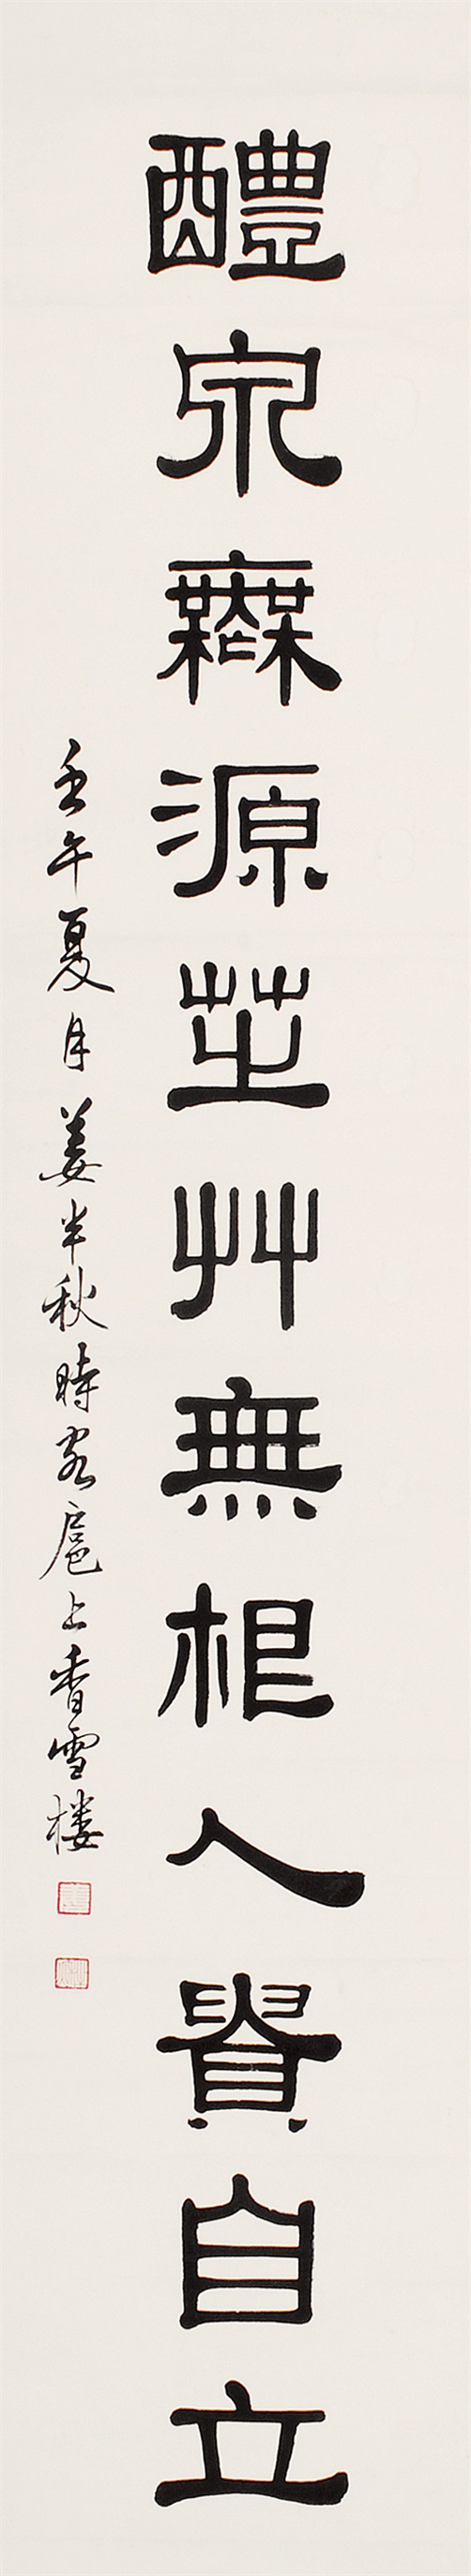 醴泉無源芝艸無根人貴自立
壬午夏月姜半秋時客扈上香雪樓